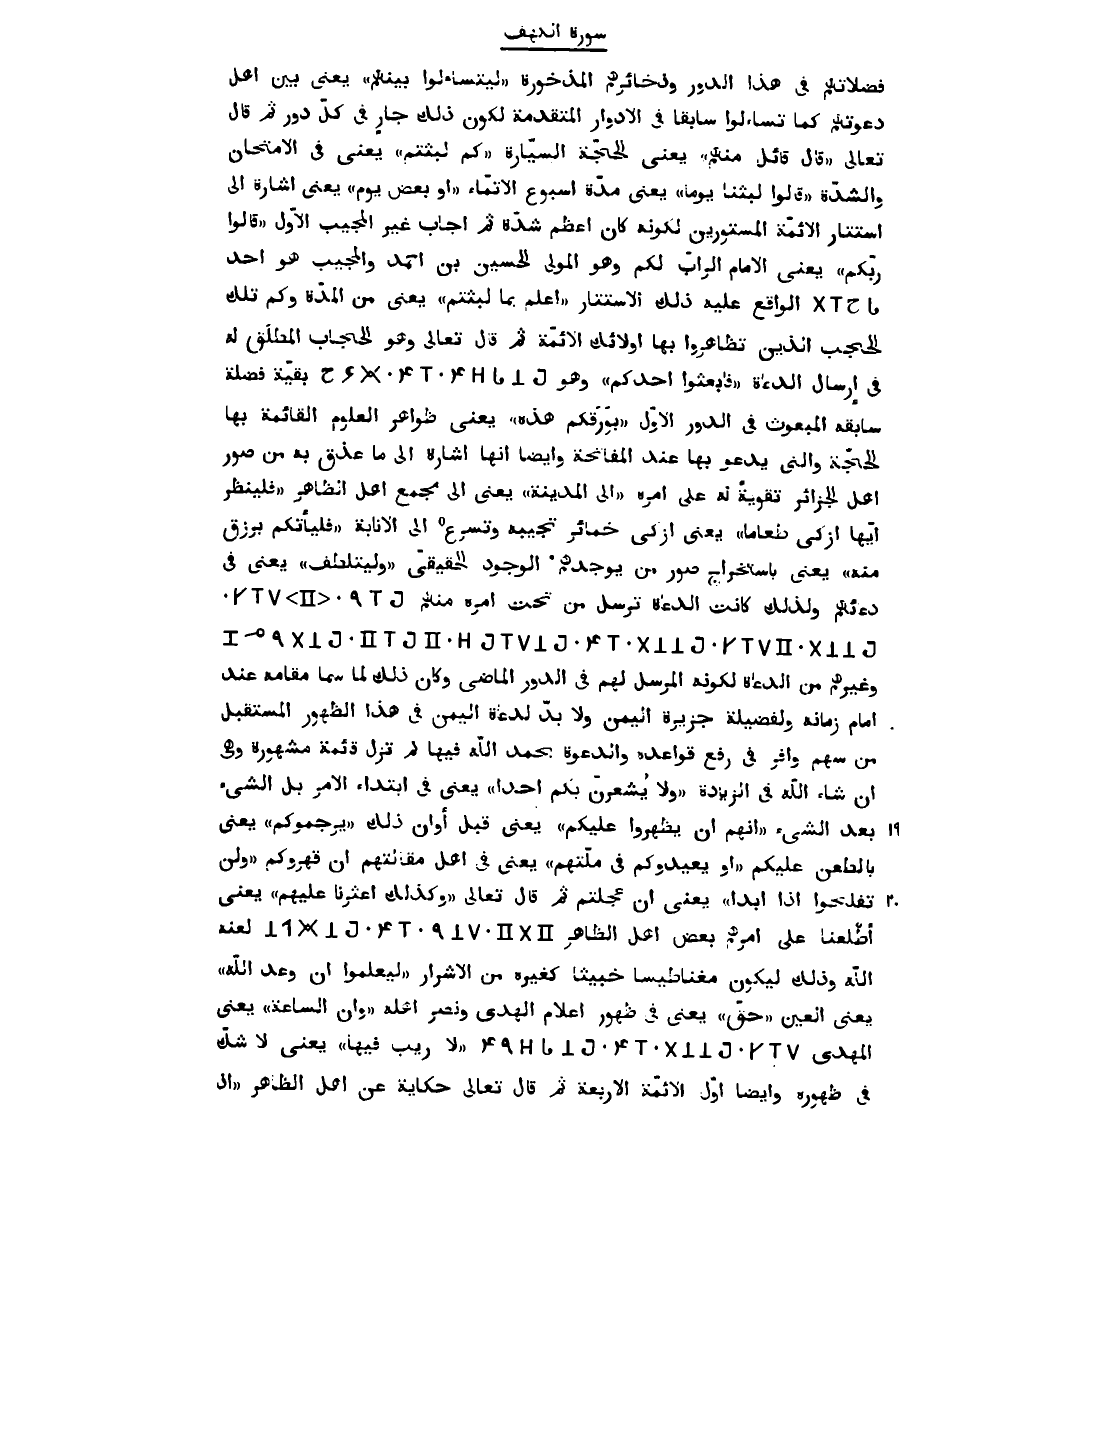 سورة الكهف
فضلاتهم فى هذا الدور وذخائرهم المذخورة «ليتساءلوا بينهم» يعنى بين اهل
دعوتهم كما تساءلوا سابقا فى الادوار المتقدمة لكون ذلك جارٍ فى كلّ دور ثم قال
تعالى «قال قائل منهم» يعنى الحجّة السيّارة «كم لبثتم» يعنى فى الامتحان
والشدّة «قالوا لبثنا يوما» يعنى مدّة اسبوع الاتمّاء «او بعض يوم» يعنى اشارة الى
استتار الائمّة المستورين لكونه كان اعظم شدّة ثم اجاب غير المجيب الاوّل «قالوا
ربّكم» يعنى الامام الرابّ لكم وهو المولى الحسين بن احمد والمجيب هو احد
الواقع عليه ذلك الاستتار «اعلم بما لبثتم» يعنى من المدّة وكم تلك
الحجب الذين تظاهروا بها اولائك الائمّة ثم قال تعالى وهو الحجاب المطلَق له
فى إرسال الدعاة «فابعثوا احدكم» وهو بقيّة فضلة
سابقه المبعوث فى الدور الاوّل «بوَرَقكم هذه» يعنى ظواهر العلوم القائمة بها
الحجّة والتى يدعو بها عند المفاتحة وايضا انها اشارة الى ما عذق به من صور
اهل الجزائر تقويةً له على امره «الى المدينة» يعنى الى مجمع اهل الظاهر «فلينظر
ايّها ازكى طعاما» يعنى ازكى خمائر تجيبه وتسرع الى الانابة «فليأتكم برزق
منه» يعنى باستخراج صور من يوجدهم الوجود الحقيقىّ «وليتلطف» يعنى فى
دعائهم ولذلك كانت الدعاة ترسل من تحت امره منهم
وغيرهم من الدعاة لكونه المرسل لهم فى الدور الماضى وكان ذلك لما سما مقامه عند
امام زمانه ولفضيلة جزيرة اليمن ولا بدّ لدعاة اليمن فى هذا الظهور المستقبل
من سهم وافر فى رفع قواعده والدعوة بحمد اللّه فيها لم تزل قائمة مشهورة وهى
ان شاء اللّه فى الزيادة «ولا يُشعرنّ بكم احدا» يعنى فى ابتداء الامر بل الشىء
١٩ بعد الشىء «انهم ان يظهروا عليكم» يعنى قبل أوان ذلك «يرجموكم» يعنى
بالطعن عليكم «او يعيدوكم فى ملّتهم» يعنى فى اهل مقالتهم ان قهروكم «ولن
٢٠ تفلحوا اذا ابدا» يعنى ان عجلتم ثم قال تعالى «وكذلك اعثرنا عليهم» يعنى
أطّلعنا على امرهم بعض اهل الظاهر لعنه
اللّه وذلك ليكون مغناطيسا خبيثا كغيره من الاشرار «ليعلموا ان وعد اللّه»
يعنى العين «حقّ» يعنى فى ظهور اعلام الهدى ونصر اهله «وان الساعة» يعنى
المهدى «لا ريب فيها» يعنى لا شكّ
فى ظهوره وايضا اوّل الائمّة الاربعة ثم قال تعالى حكاية عن اهل الظاهر «اذ